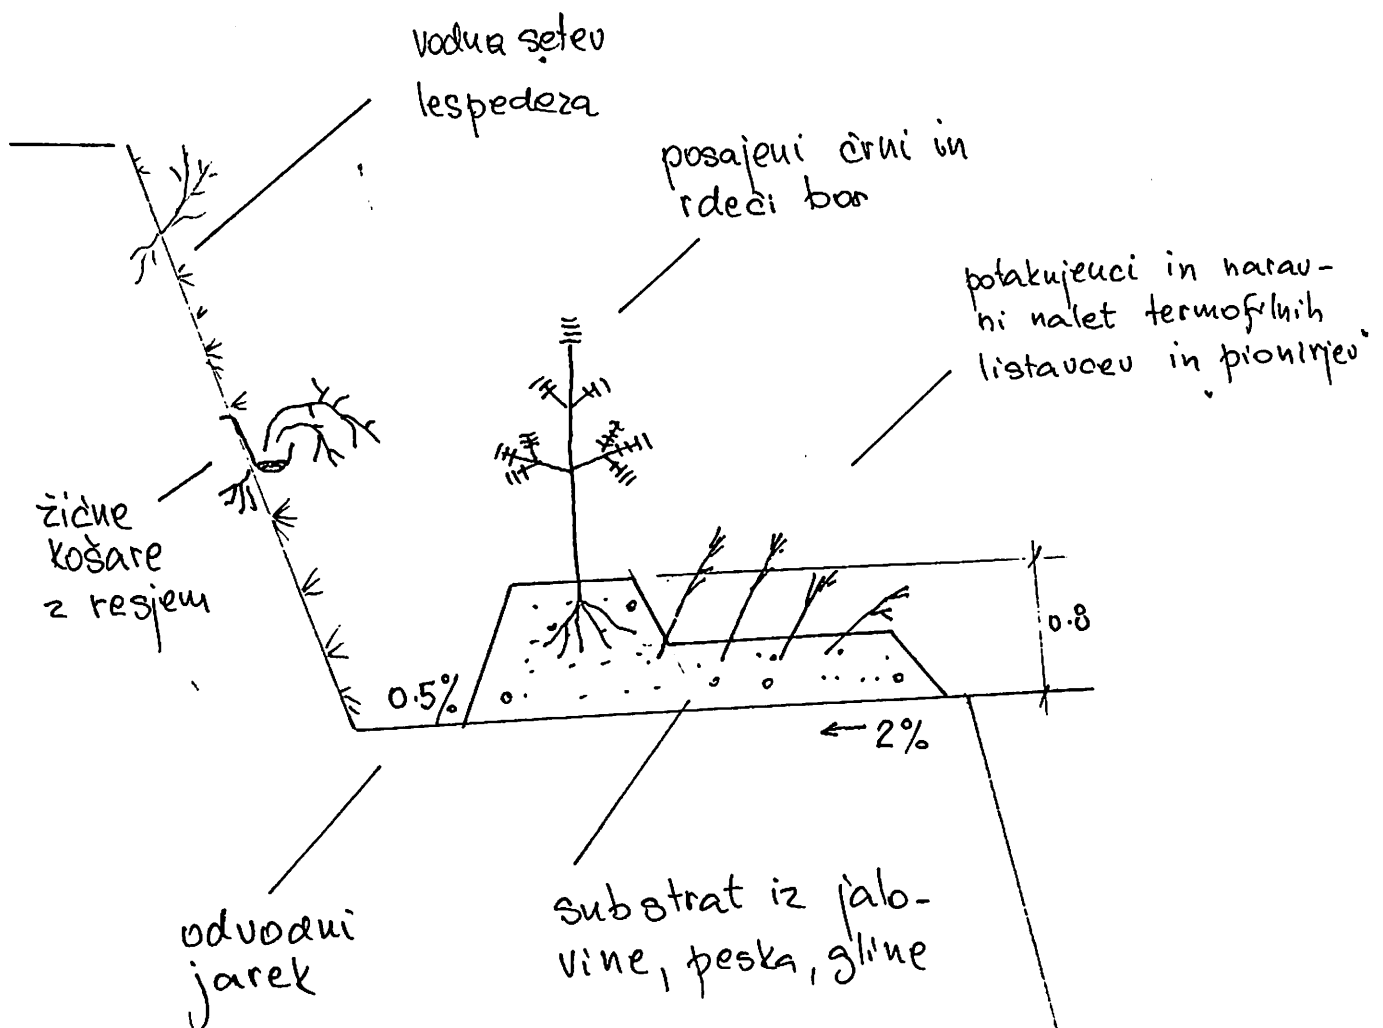 vodna setev
lespedeza
posajeni črni in
rdeči bor
potakujenci in narav-
ni nalet termofilnih
listavcev in pionirjev
žične
košare
z resjem
0.8
0.5%
← 2%
odvodni
jarek
substrat iz jalo-
vine, peska, gline